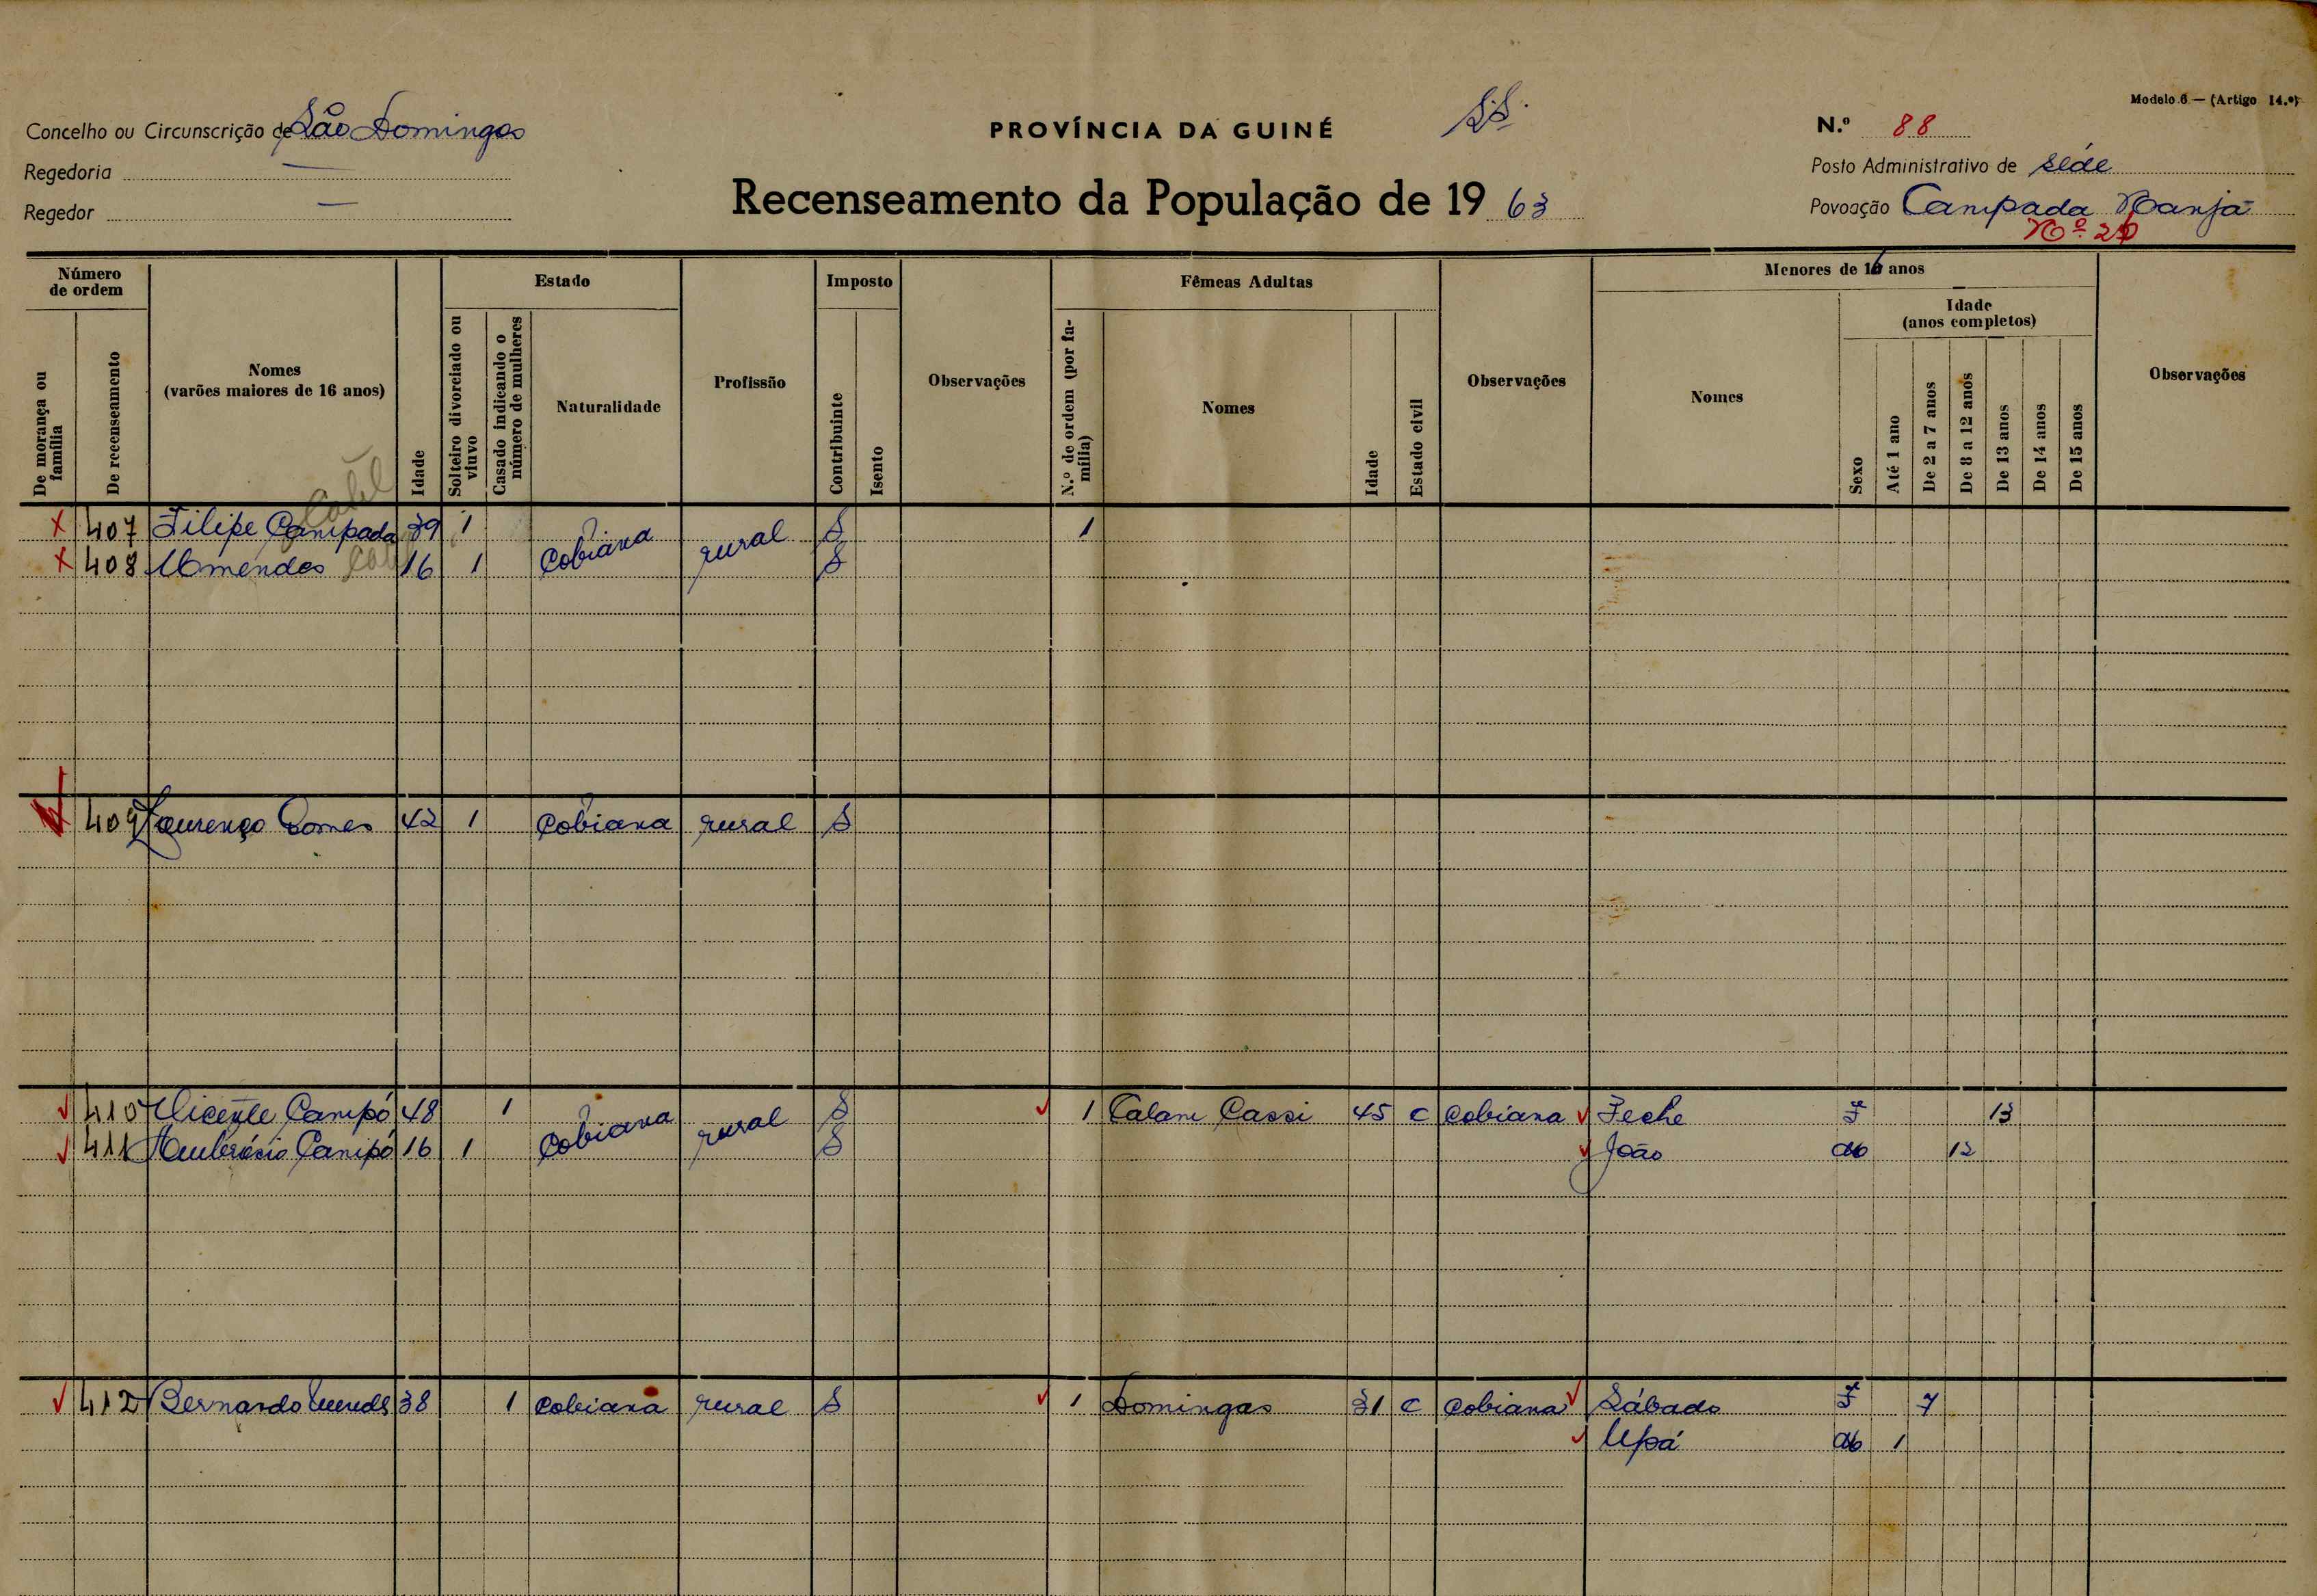 Modelo 6 — (Artigo 14.º)
Concelho ou Circunscrição de São Domingos
PROVÍNCIA DA GUINÉ
N.º 88
Regedoria —
Posto Administrativo de Séde
Regedor —
Recenseamento da População de 19 63
Povoação Campada Manjá
Nº 20
Número de ordem
De morança ou família
De recenseamento
Nomes
(varões maiores de 16 anos)
Idade
Estado
Solteiro divorciado ou viuvo
Casado indicando o número de mulheres
Naturalidade
Profissão
Imposto
Contribuinte
Isento
Observações
Fêmeas Adultas
N.º de ordem (por família)
Nomes
Idade
Estado civil
Observações
Menores de 16 anos
Nomes
Sexo
Idade
(anos completos)
Até 1 ano
De 2 a 7 anos
De 8 a 12 anos
De 13 anos
De 14 anos
De 15 anos
Observações
407 Filipe Campada 39 1 Cobiana rural S 1
408 16 1 S
409 Lourenço Gomes 42 1 Cobiana rural S
410 Vicente Campó 48 1 Cobiana rural S 1 Calam Cassi 45 C Cobiana Feche F 13
411 Ambrósio Campó 16 1 S João M 12
412 Bernardo Mendes 38 1 Cobiana rural S 1 Domingas 31 C Cobiana Sábado F 7
Upá M 1